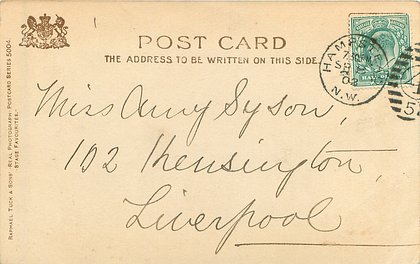 POST CARD
THE ADDRESS TO BE WRITTEN ON THIS SIDE.
HAMPST
N.W.
Miss Amy Syson,
102 Kensington,
Liverpool
RAPHAEL TUCK & SONS' "REAL PHOTOGRAPH" POSTCARD SERIES 5004.
STAGE FAVOURITES.